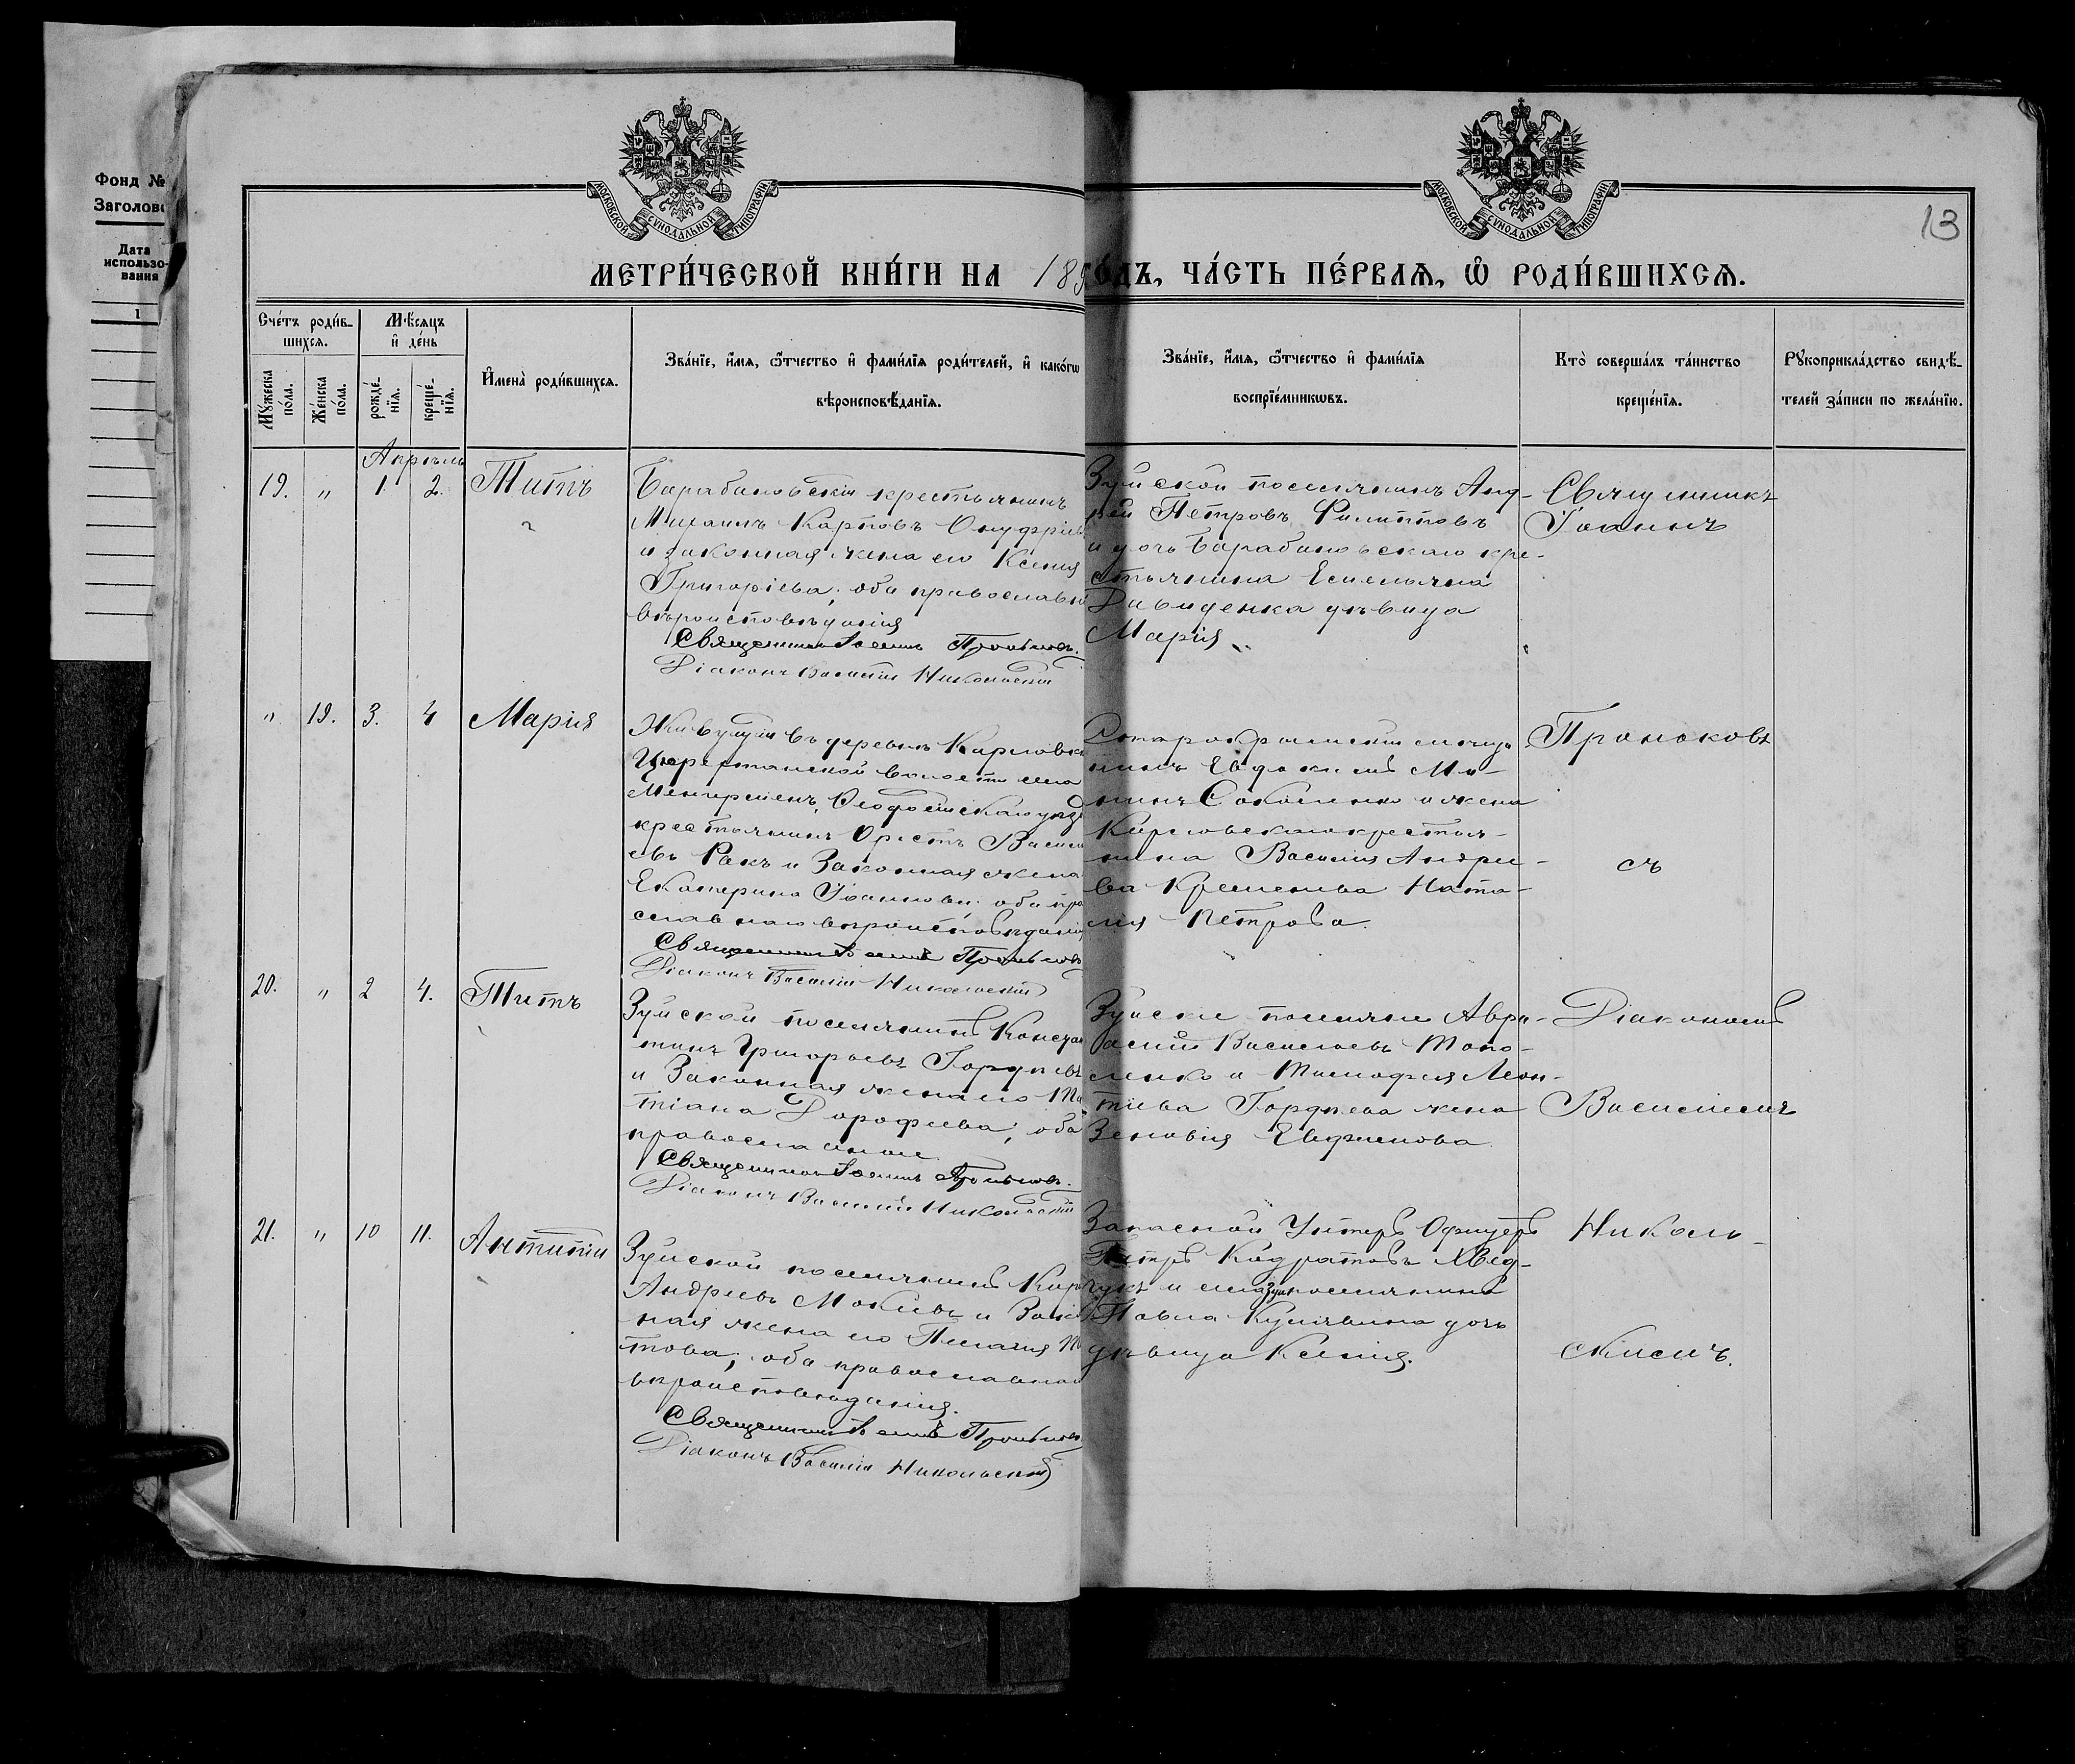 Фонд №
Заголово
Дата
использо-
вания
1
МОСКОВСКОЙ СѴНОДАЛЬНОЙ ТИПОГРАФІИ
МОСКОВСКОЙ СѴНОДАЛЬНОЙ ТИПОГРАФІИ
13
МЕТРИ́ЧЕСКОЙ КНИ́ГИ НА 189
О́ДЪ, ЧА́СТЬ ПЕ́РВАѦ, Ѡ РОДИ́ВШИХСѦ.
Сче́тъ роди́в-
шихсѧ.
Мѣ́сѧцъ
и де́нь
Мꙋжеска по́ла.
Же́нска по́ла.
рожде́-
нїѧ.
креще́-
нїѧ.
Имена̀ роди́вшихсѧ.
Зва́нїе, и́мѧ, ѻ́тчество и фами́лїѧ роди́телей, и како́гѡ
вѣроисповѣ́данїѧ.
Зва́нїе, и́мѧ, ѻ́тчество и фами́лїѧ
воспрїе́мникѡвъ.
Кто̀ соверша́лъ та́инство
креще́нїѧ.
Рꙋкоприкла́дство свидѣ́-
телей за́писи по жела́нїю.
Апрѣль
19. " 1. 2. Титъ
Барабановскій крестьянинъ
Михаилъ Карповъ Онуфріев
и законная жена его Ксенія
Григоріева, оба православн
вѣроисповѣданія
Священникъ Іоаннъ
Діаконъ Василій Никольскій
Зуйской поселянинъ Анд-
рей Петровъ Филипповъ
и дочь Барабановскаго кре-
стьянина Емельяна
Давиденка дѣвица
Марія
Священникъ
Іоаннъ
" 19. 3. 4 Марія
Живущій въ деревнѣ Карловк
волости
Ѳеодосійскаго уѣз
крестьянинъ Орестъ Васил
евъ Ракъ и Законная жена
Екатерина Іоаннова; оба пра
славнаго вѣроисповѣданія
Священникъ Іоаннъ
Діаконъ Василій Никольскій
Старокрымскій мѣща
нинъ Евдокимъ Ми-
и жена
Карловскаго крестья-
нина Василія Андре-
ева Ната-
лія Петрова.
съ
20. " 2 4. Титъ
Зуйской поселянинъ Конста
тинъ Григорьевъ Гордѣевъ
и Законная жена его Та
тіана Дорофеева, оба
православные
Священникъ Іоаннъ
Діаконъ Василій Никольскій
Зуйскіе поселяне Авра-
амій Васильевъ
и Тимофея Леон-
тіева Гордѣева жена
Зеновія
Діакономъ
Василіемъ
21. " 10 11. Антипій
Зуйской поселянинъ Кар
Андреевъ и Закон
ная жена его Пелагія
това, оба православнаго
вѣроисповѣданія.
Священникъ Іоаннъ
Діаконъ Василій Никольскій
Запасной Унтеръ Офицеръ
Петръ
и поселянина
Павла дочь
дѣвица Ксенія.
Николь-
скимъ.